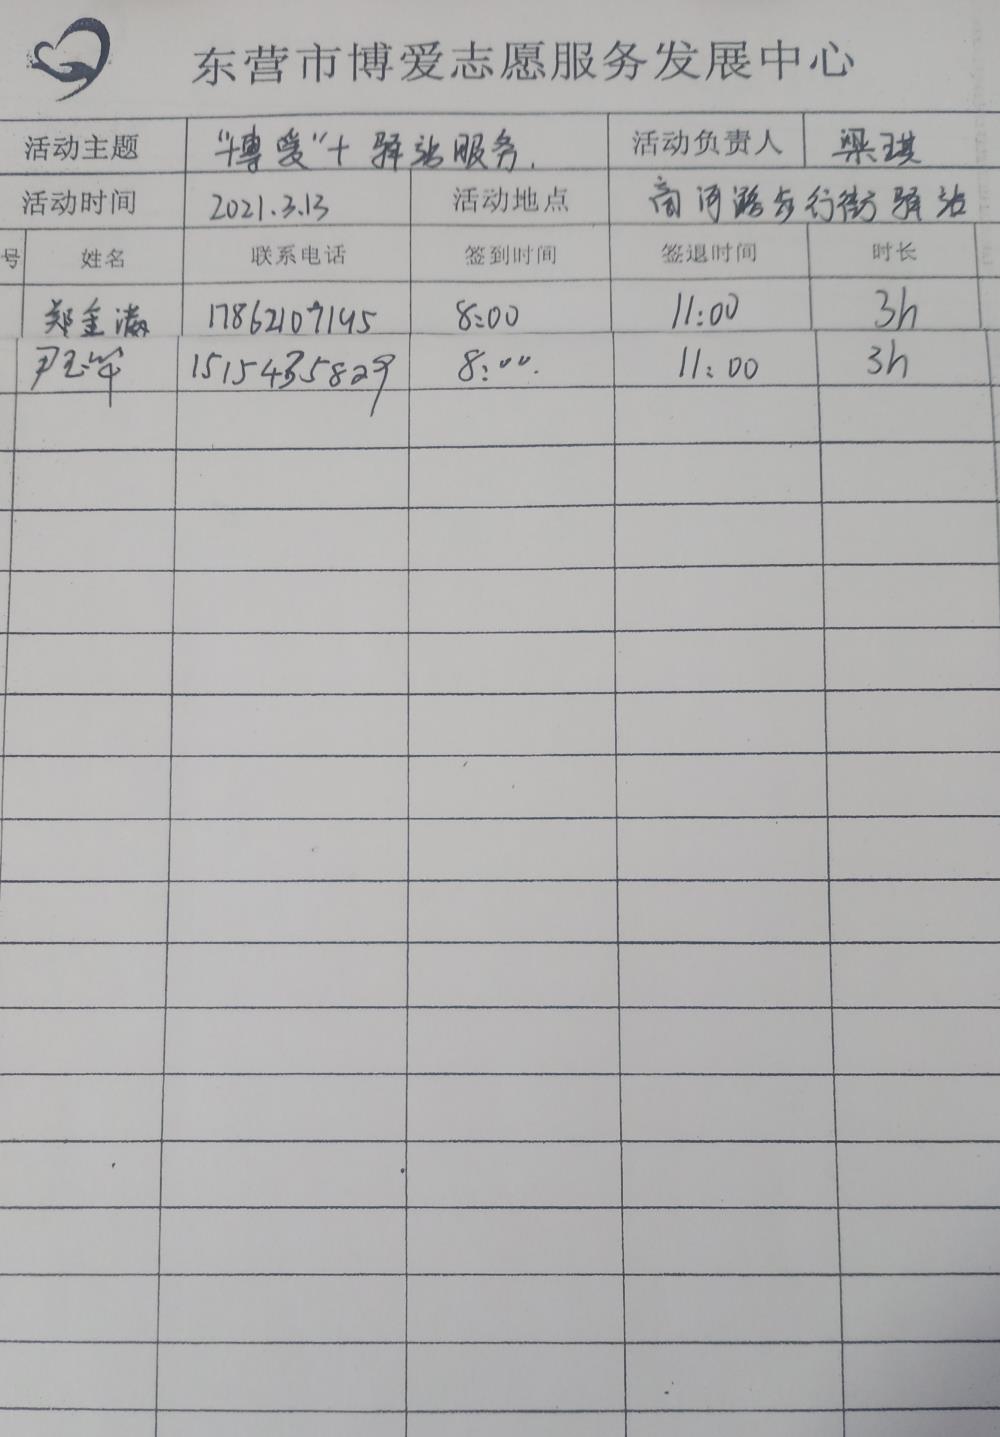 东营市博爱志愿服务发展中心
活动主题 “博爱”+驿站服务. 活动负责人 梁琪
活动时间 2021.3.13 活动地点 商河路步行街驿站
号 姓名 联系电话 签到时间 签退时间 时长
郑金 8:00 11:00 3h
尹玉华 8:00. 11:00 3h